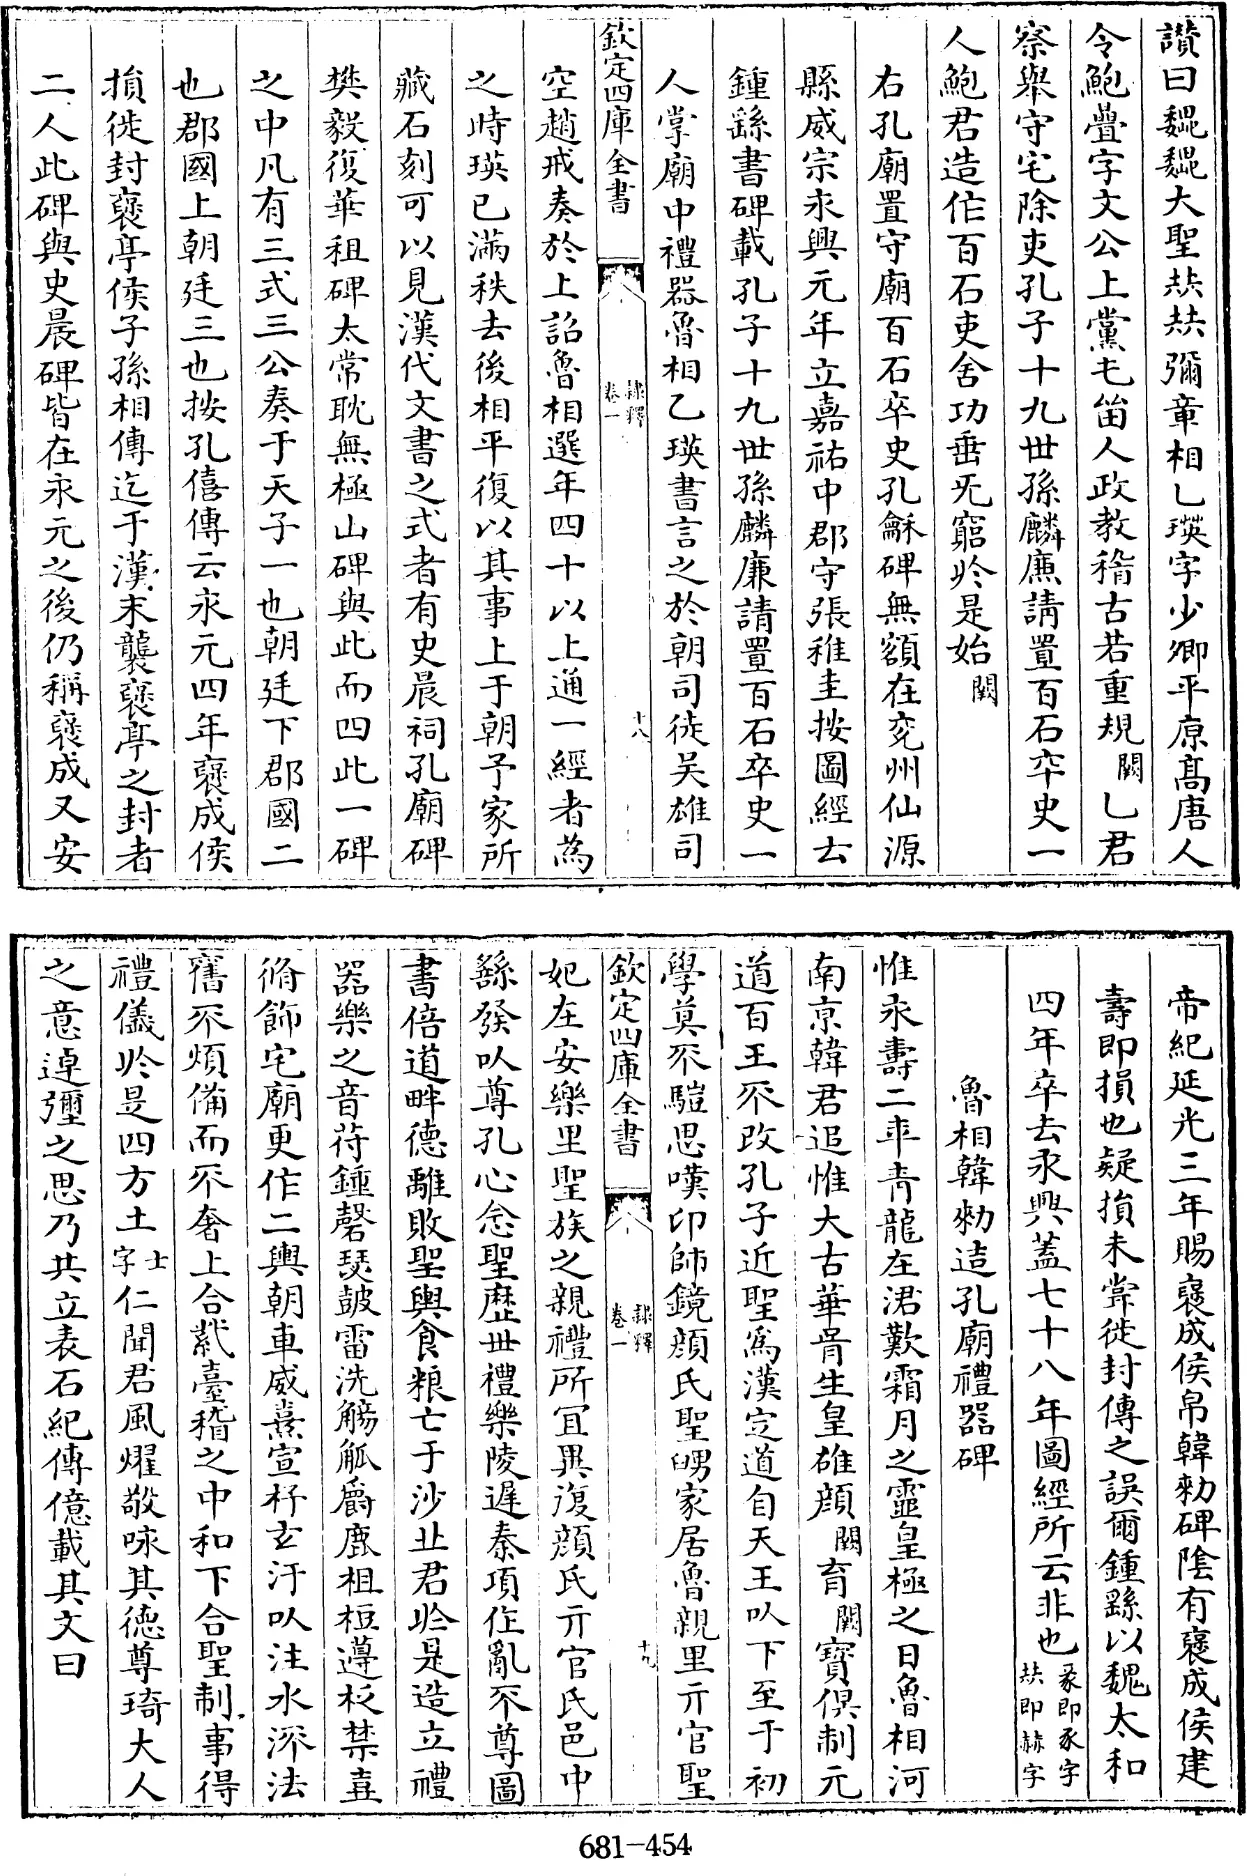 讃曰巍巍大聖㷎㷎彌章相乙瑛字少卿平原髙唐人
令鮑疊字文公上黨屯留人政教稽古若重規闕乙君
察舉守宅除吏孔子十九世孫麟廉請置百石卒史一
人鮑君造作百石吏舍功垂无窮於是始闕
右孔廟置守廟百石卒史孔龢碑無額在兖州仙源
縣威宗永興元年立嘉祐中郡守張稚圭按圖經云
鍾繇書碑載孔子十九世孫麟廉請置百石卒史一
人掌廟中禮器魯相乙瑛書言之於朝司徒吴雄司
欽定四庫全書
隸釋
卷一
十八
空趙戒奏於上詔魯相選年四十以上通一經者為
之時瑛已滿秩去後相平復以其事上于朝予家所
藏石刻可以見漢代文書之式者有史晨祠孔廟碑
樊毅復華租碑太常耽無極山碑與此而四此一碑
之中凡有三式三公奏于天子一也朝廷下郡國二
也郡國上朝廷三也按孔僖傳云永元四年襃成侯
損徙封襃亭侯子孫相傳迄于漢末襲襃亭之封者
二人此碑與史晨碑皆在永元之後仍稱襃成又安
帝紀延光三年賜襃成侯帛韓勑碑隂有襃成侯建
壽即損也疑損未嘗徙封傳之誤爾鍾繇以魏太和
四年卒去永興蓋七十八年圖經所云非也㒸即豕字
㷎即赫字
魯相韓勑造孔廟禮器碑
惟永壽二年青龍在涒歎霜月之靈皇極之日魯相河
南京韓君追惟大古華胥生皇雄顔闕育闕寳俱制元
道百王不改孔子近聖爲漢定道自天王以下至于初
學莫不騩思嘆卬師鏡顔氏聖舅家居魯親里亓官聖
欽定四庫全書
隸釋
卷一
十九
妃在安樂里聖族之親禮所冝異復顔氏亓官氏邑中
繇發以尊孔心念聖歴世禮樂陵遲秦項作亂不尊圖
書倍道畔德離敗聖輿食粮亡于沙丘君於是造立禮
器樂之音符鍾磬瑟鼓雷洗觴觚爵鹿柤梪籩柉禁壴
脩飾宅廟更作二輿朝車威熹宣杼玄汙以注水流法
舊不煩備而不奢上合紫臺稽之中和下合聖制事得
禮儀於是四方土士字仁聞君風燿敬咏其德尊琦大人
之意逴彌之思乃共立表石紀傳億載其文曰
681-454